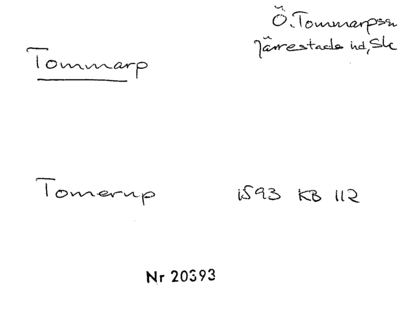 Ö. Tommarps sn
Järrestads hd, Sk
Tommarp
Tomerup 1593 KB 112
Nr 20393